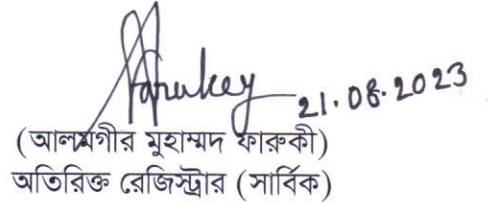 Farukey 21.08.2023
(আলমগীর মুহাম্মদ ফারুকী)
অতিরিক্ত রেজিস্ট্রার (সার্বিক)